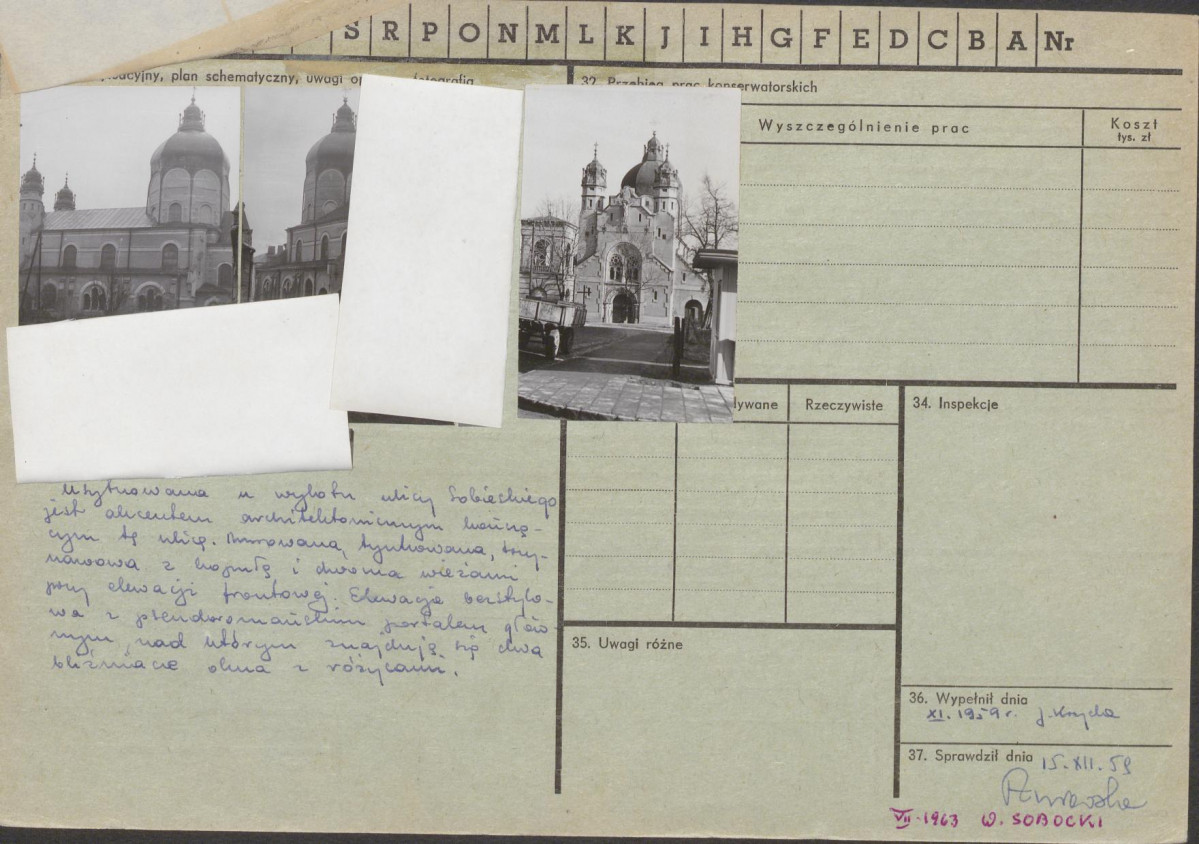 S R P O N M L K J I H G F E D C B A Nr
acyjny, plan schematyczny, uwagi op fotografia
32. Przebieg prac konserwatorskich
Wyszczególnienie prac
Koszt
tys. zł
ywane
Rzeczywiste
34. Inspekcje
Usytuowana u wylotu ulicy Sobieskiego
jest akcentem architektonicznym kończą-
cym tę ulicę. Murowana, tynkowana, trzy-
nawowa z kopułą i dwoma wieżami
przy elewacji frontowej. Elewacja bezstylo-
wa z pseudoromańskim portalem głów
nym, nad którym znajdują się dwa
bliźniacze okna z różycami.
35. Uwagi różne
36. Wypełnił dnia
XI. 1959 r. J.
37. Sprawdził dnia 15. XII. 59
VII-1963 W. SOBOCKI